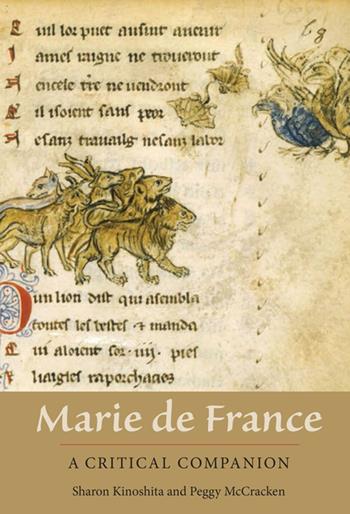 uil lor puet ausint
I ames ne troueront
A encele tre ne uendront
il isoient sanz peor
esanz trauailg ne sanz labor
D un lion dist qui asembla
toutes les bestes ⁊ manda
ui aloient sor .iiij. pies
Marie de France
A CRITICAL COMPANION
Sharon Kinoshita and Peggy McCracken